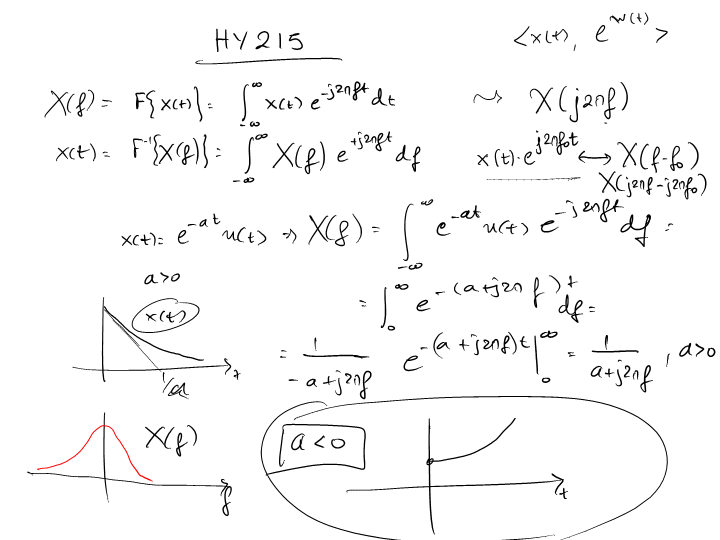 HY215
<x(t), e^w(t)>
X(f) = F{x(t)} = ∫_{-∞}^{∞} x(t) e^{-j2πft} dt ⇝ X(j2πf)
x(t) = F^{-1}{X(f)} = ∫_{-∞}^{∞} X(f) e^{+j2πft} df
x(t)·e^{j2πf₀t} ↔ X(f-f₀)
X(j2πf-j2πf₀)
x(t) = e^{-at} u(t) ⇒ X(f) = ∫_{-∞}^{∞} e^{-at} u(t) e^{-j2πft} df =
a>0
= ∫_{0}^{∞} e^{-(a+j2πf)t} df =
x(t)
= 1/(-a+j2πf) e^{-(a+j2πf)t} |_{0}^{∞} = 1/(a+j2πf), a>0
1/a
t
X(f)
f
a<0
t